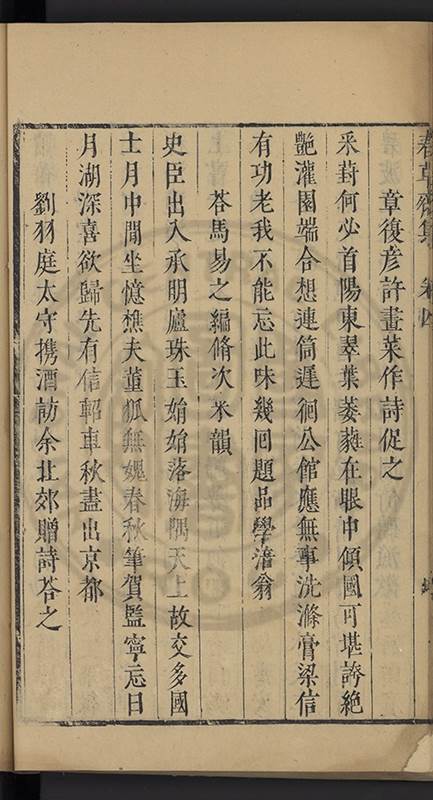 春草齋集 卷四
章復彥許畫菜作詩促之
采葑何必首陽東翠葉萎蕤在眼中傾國可堪誇絕
艷灌園端合想連筒遲徊公館應無事洗滌膏粱信
有功老我不能忘此味幾回題品學涪翁
荅馬易之編脩次來韻
史臣出入承明廬珠玉娋娋落海隅天上故交多國
士月中閒坐憶樵夫董狐無媿春秋筆賀監寧忘日
月湖深喜欲歸先有信軺車秋盡出京都
劉羽庭太守携酒訪余北郊贈詩荅之